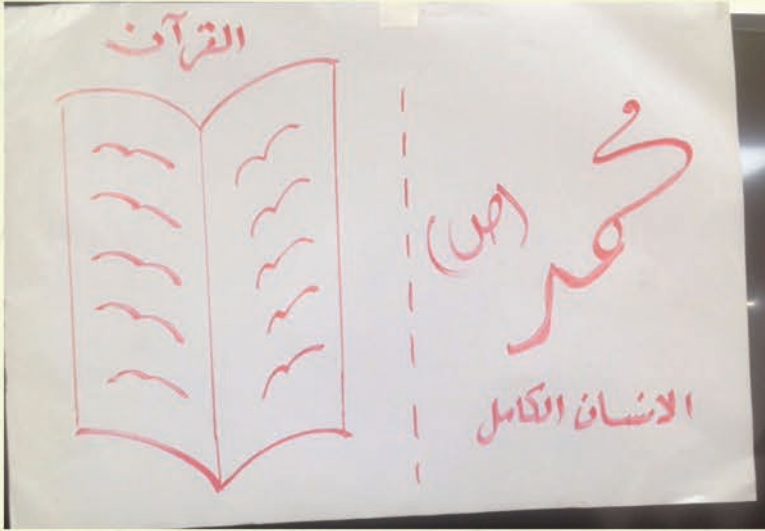 القرآن
محمد
(ص)
الانسان الكامل